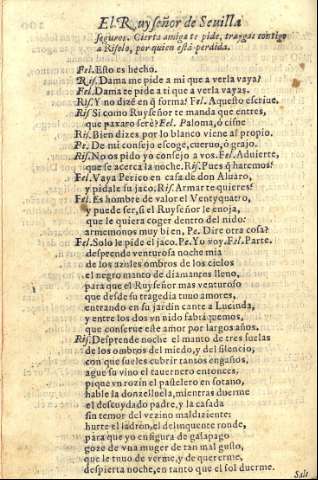 El Ruyseñor de Seuilla
seguros. Cierta amiga te pide, traygas contigo
a Riselo, por quien està perdida.
Fel. Esto es hecho.
Ris. Dama me pide a mi que a verla vaya?
Fel. Dama te pide a ti que a verla vayas.
Ris. Y no dizẽ en q̃ forma? Fel. Aquesto escriue.
Ris Si como Ruyseñor te manda que entres,
que paxaro serè? Fel. Paloma, ò cisne
Ris. Bien dizes por lo blanco viene al propio.
Pe. De mi consejo escoge, cueruo, ò grajo.
Ris. No os pido yo consejo a vos. Fel. Aduierte,
que se acerca la noche. Ris. Pues q̃ haremos?
Fel. Vaya Perico en casa de don Aluaro,
y pidale su jaco. Ris. Armar te quieres?
Fel. Es hombre de valor el Ventyquatro,
y puede ser, si el Ruyseñor le enoja,
que le quiera coger dentro del nido:
armemonos muy bien. Pe. Dire otra cosa?
Fel. Solo le pide el jaco. Pe. Yo voy. Fel. Parte.
desprende venturosa noche mia
de los azules ombros de los cielos
el negro manto de diamantes lleno,
para que el Ruyseñor mas venturoso
que desde su tragedia tuuo amores,
entrando en su jardin cante a Lucinda,
y entre los dos vn nido fabriquemos,
que conserue este amor por largos años.
Ris. Desprende noche el manto de tres suelas
de los ombros del miedo, y del silencio,
con que sueles cubrir tantos engaños,
ague su vino el tauernero entonces,
pique vn rozin el pastelero en sotano,
hable la donzelluela, mientras duerme
el descuydado padre, y la casada
sin temor del vezino maldiziente:
hurte el ladron, el delinquente ronde,
para que yo en figura de galapago
goze de vna muger de tan mal gusto,
que le tuuo de verme, y de quererme,
despierta noche, en tanto que el sol duerme.
Sale